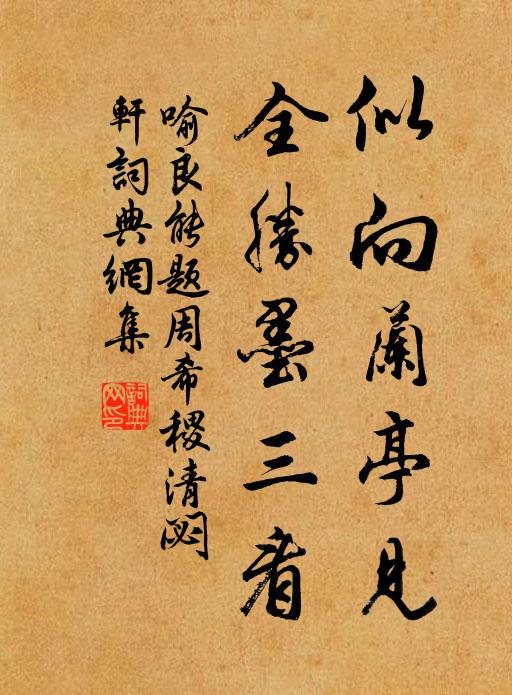 似向蘭亭見
全勝墨三看
喻良能题周希稷清閟
軒詞典網集
詞典
网印